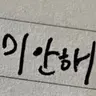 미안해